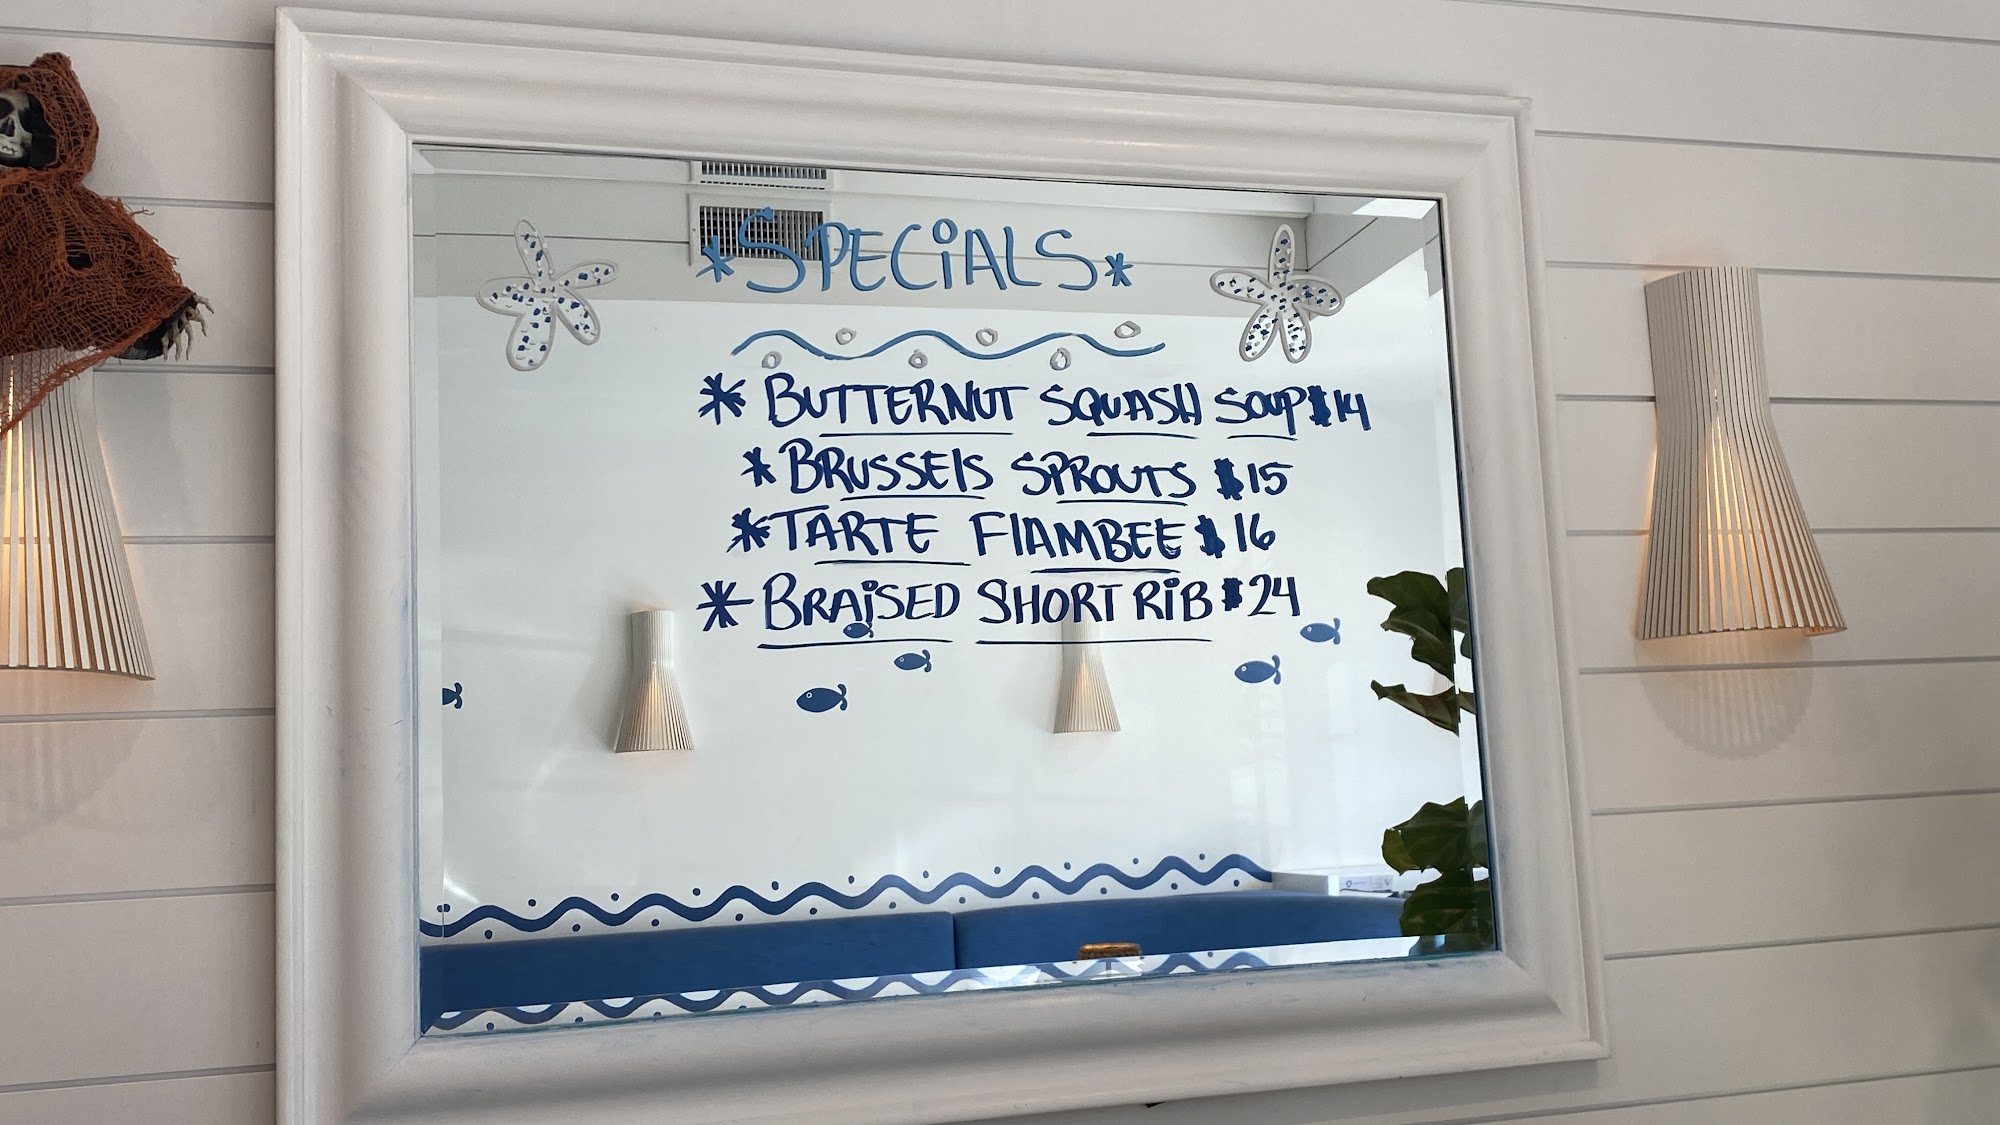 *SPECiALS*
* BUTTERNUT SQUASH SOUP $14
* BRUSSElS SPROUTS $15
* TARTE FlAMBEE $16
* BRAiSED SHORT RiB $24